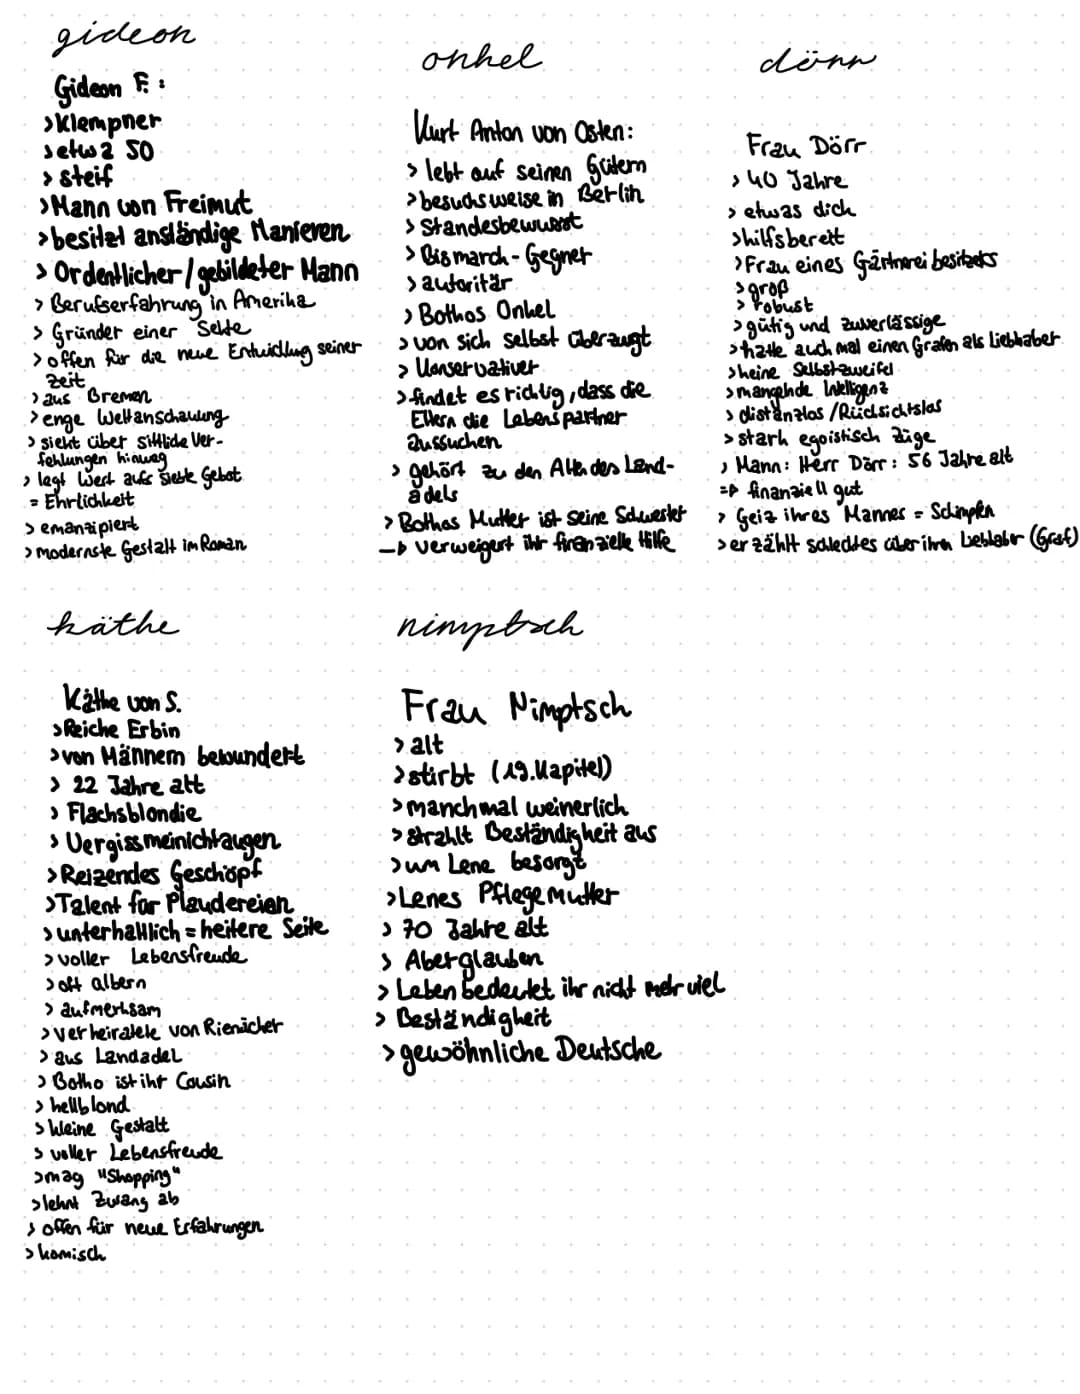 gideon
Gideon F. :
>Klempner
>etwa 50
> steif
>Mann von Freimut
>besitzt anständige Manieren
> Ordentlicher/gebildeter Mann
> Berufserfahrung in Amerika
> Gründer einer Sekte
> offen für die neue Entwicklung seiner
Zeit
> aus Bremen
> enge Weltanschauung
> sieht über sittliche Ver-
fehlungen hinweg
> legt Wert aufs siebte Gebot
= Ehrlichkeit
> emanzipiert
> modernste Gestalt im Roman
onkel
Kurt Anton von Osten:
> lebt auf seinen Gütern
>besuchsweise in Berlin
> Standesbewusst
> Bismarck-Gegner
> autoritär
> Bothos Onkel
> von sich selbst überzeugt
> Konservativer
> findet es richtig, dass die
Eltern die Lebenspartner
aussuchen
> gehört zu den Alten des Land-
adels
> Bothos Mutter ist seine Schwester
→ verweigert ihr finanzielle Hilfe
dörr
Frau Dörr
> 40 Jahre
> etwas dick
>hilfsbereit
>Frau eines Gärtnerei besitzers
>groß
> robust
>gütig und zuverlässige
>hatte auch mal einen Grafen als Liebhaber
>keine Selbstzweifel
>mangelnde Intelligenz
> distanzlos/Rücksichtslos
>stark egoistisch züge
> Mann: Herr Dörr: 56 Jahre alt
=> finanziell gut
> Geiz ihres Mannes = Schimpfen
>erzählt schlechtes über ihren Liebhaber (Graf)
käthe
Käthe von S.
>Reiche Erbin
>von Männern bewundert
> 22 Jahre alt
> Flachsblondie
> Vergissmeinichtaugen
>Reizendes Geschöpf
>Talent für Plaudereien
>unterhaltlich = heitere Seite
>voller Lebensfreude
>oft albern
> aufmerksam
>verheiratete von Rienäcker
> aus Landadel
> Botho ist ihr Cousin
> hellblond
>kleine Gestalt
> voller Lebensfreude
>mag "Shopping"
>lehnt Zwang ab
> offen für neue Erfahrungen
>komisch
nimptsch
Frau Nimptsch
> alt
>stirbt (19.Kapitel)
>manchmal weinerlich
>strahlt Beständigkeit aus
>um Lene besorgt
>Lenes Pflegemutter
> 70 Jahre alt
> Aberglauben
> Leben bedeutet ihr nicht mehr viel
> Beständigkeit
>gewöhnliche Deutsche